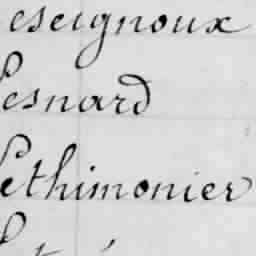 eseignoux
Lesnard
Lethimonier